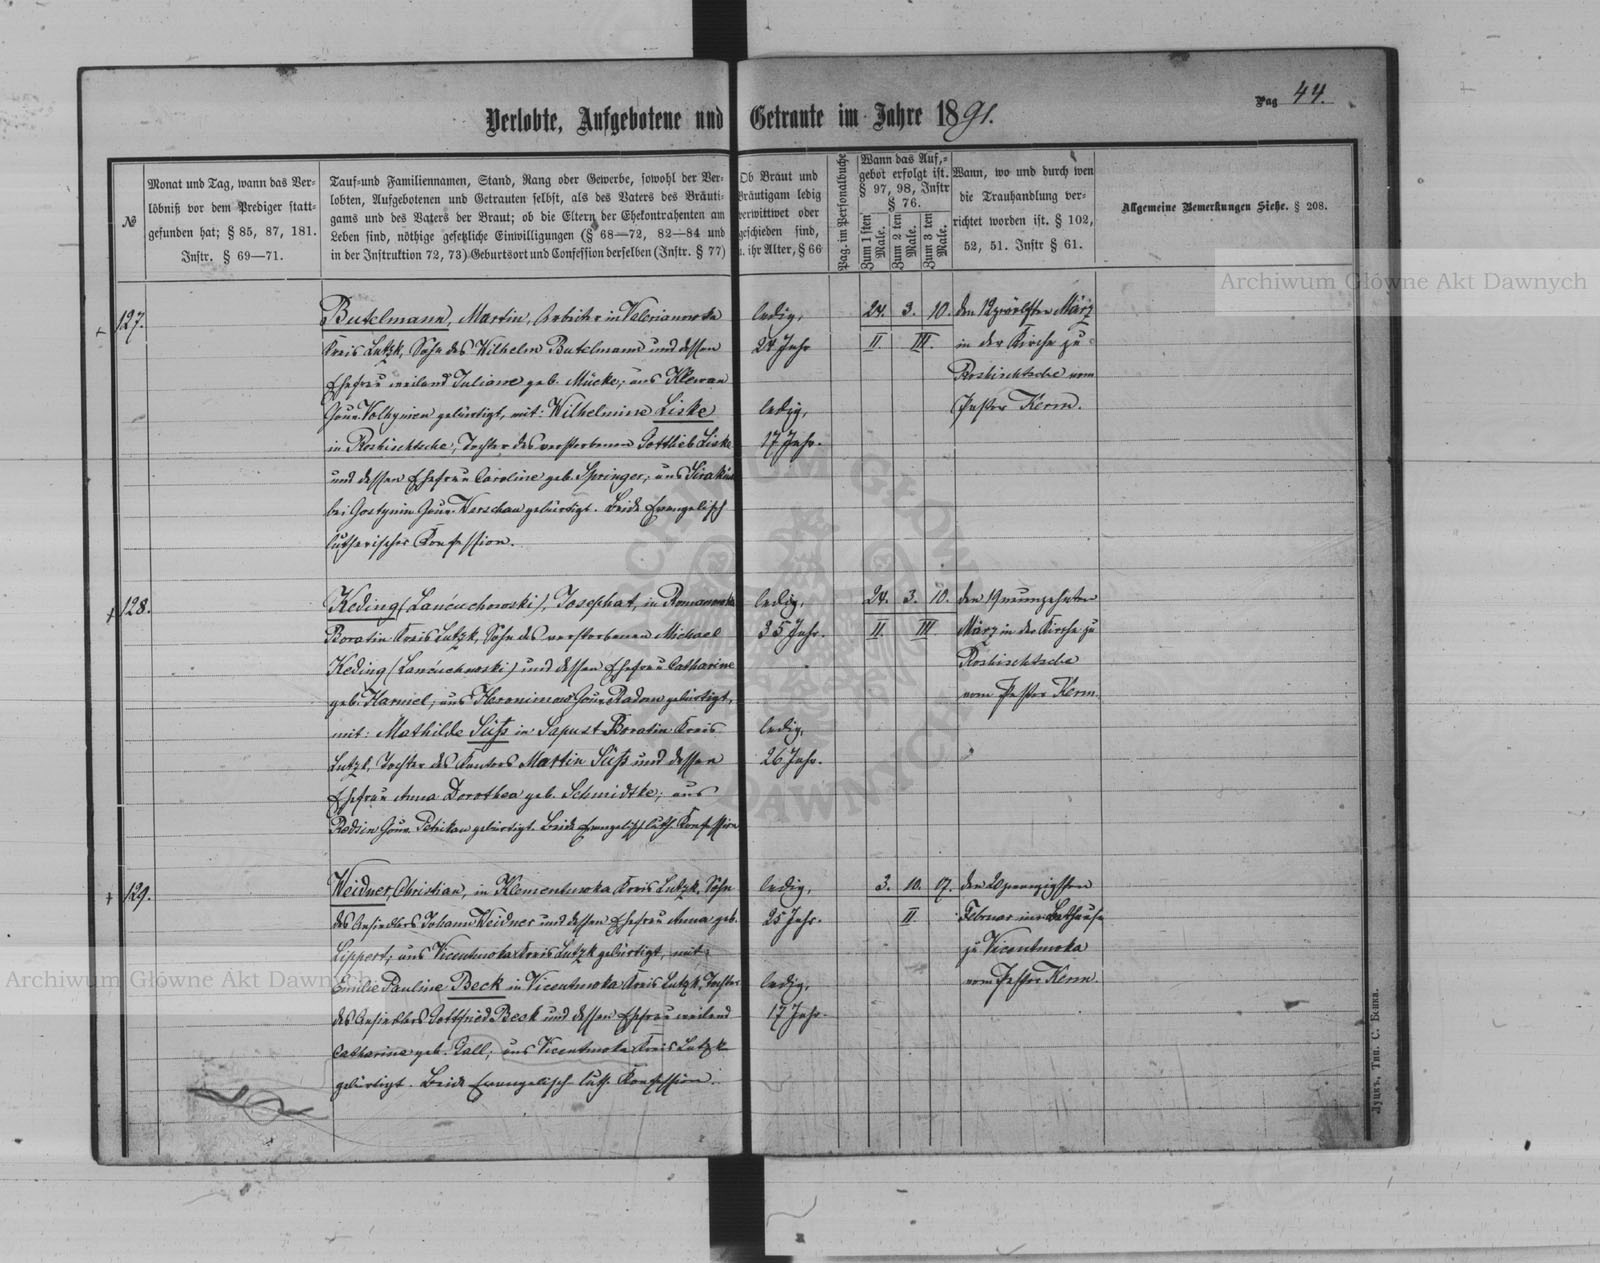 Pag 44.
Verlobte, Aufgebotene und Getraute im Jahre 1891.
№
Monat und Tag, wann das Ver-
löbniß vor dem Prediger statt-
gefunden hat; § 85, 87, 181.
Instr. § 69—71.
Tauf- und Familiennamen, Stand, Rang oder Gewerbe, sowohl der Ver-
lobten, Aufgebotenen und Getrauten selbst, als des Vaters des Bräuti-
gams und des Vaters der Braut; ob die Eltern der Ehekontrahenten am
Leben sind, nöthige gesetzliche Einwilligungen (§ 68—72, 82—84 und
in der Instruktion 72, 73) Geburtsort und Confession derselben (Instr. § 77)
Ob Braut und
Bräutigam ledig
verwittwet oder
geschieden sind,
u. ihr Alter, § 66
Pag. im Personalbuche
Wann das Auf-
gebot erfolgt ist.
§ 97, 98, Instr
§ 76.
Zum 1 sten Male.
Zum 2 ten Male.
Zum 3 ten Male.
Wann, wo und durch wen
die Trauhandlung ver-
richtet worden ist. § 102,
52, 51. Instr § 61.
Allgemeine Bemerkungen Siehe. § 208.
127.
Butelmann, Martin, Arbeiter in Valerianowka
Kreis Lutzk, Sohn des Wilhelm Butelmann und dessen
Ehefrau weiland Juliane geb. Mücke, aus Klewan
Gouv. Volhynien gebürtigt, mit: Wilhelmine Liske
in Roshischtsche, Tochter des verstorbenen Gottlieb Liske
und dessen Ehefrau Caroline geb. Springer, aus
bei Gostynin Gouv. Warschau gebürtigt. Beide Evangelisch
lutherischer Konfession.
ledig,
24 Jahr
ledig,
17 Jahr.
24. 3. 10.
II. III.
den 12 zwölften März
in der Kirche zu
Roshischtsche vom
Pastor Kerm.
128.
Keding (Lańcuchowski), Josephat, in Romanowka
Boratin Kreis Lutzk, Sohn des verstorbenen Michael
Keding (Lańcuchowski) und dessen Ehefrau Catharine
geb. Harmel, aus Heronimow Gouv. Radom gebürtigt,
mit: Mathilde Süß in Sapust Boratin Kreis
Lutzk, Tochter des Kantors Martin Süß und dessen
Ehefrau Anna Dorothea geb. Schmidtke; aus
Radsin Gouv. Petrikau gebürtigt. Beide Evangelisch luth. Konfession
ledig,
35 Jahr.
ledig,
26 Jahr.
24. 3. 10.
II. III
den 19 neunzehnten
März in der Kirche zu
Roshischtsche
vom Pastor Kerm.
129.
Weidner, Christian, in Klementowka Kreis Lutzk, Sohn
des Ansiedlers Johann Weidner und dessen Ehefrau Anna geb.
Lippert, aus Vicentowka Kreis Lutzk gebürtigt, mit:
Emilie Pauline Beck in Vicentowka Kreis Lutzk, Tochter
des Ansiedlers Gottfried Beck und dessen Ehefrau weiland
Catharina geb. Gall, aus Vicentowka Kreis Lutzk
gebürtigt. Beide Evangelisch luth. Konfession.
ledig,
25 Jahr.
ledig,
17 Jahr.
3. 10. 17.
II
den 20 zwanzigsten
Februar im Bethause
zu Vicentowka
vom Pastor Kerm.
Луцкъ, Тип. С. Бонка.
Archiwum Główne Akt Dawnych
Archiwum Główne Akt Dawnych
ARCHIWUM GŁÓWNE AKT DAWNYCH